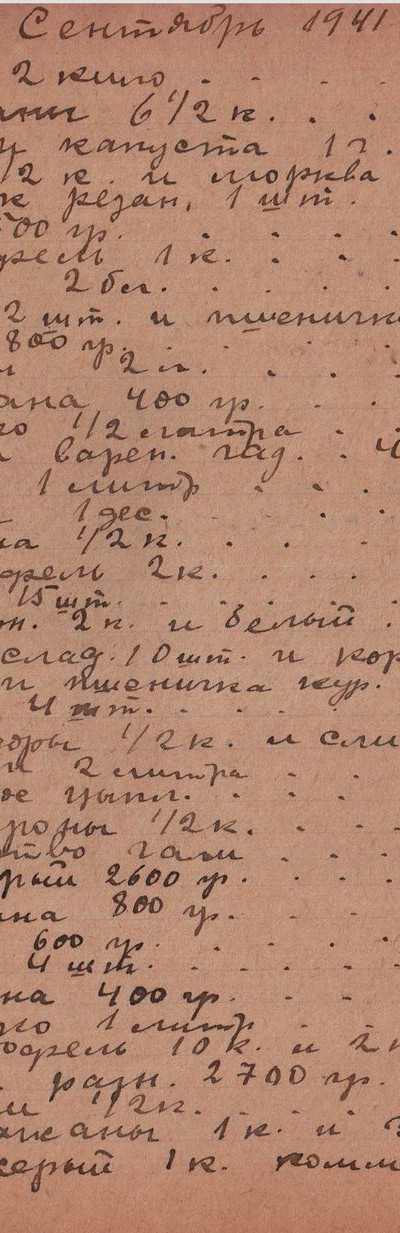 Сентябрь 1941
2 кило . . . .
аны 6 1/2 к. . .
и капуста 1 г.
1/2 к. и морква
к резан. 1 шт.
500 гр. . . .
фель 1 к. . . .
2 бл. . . . .
2 шт. и пшеничк
800 гр. . . .
и 2 л. . . .
ана 400 гр. . .
ко 1/2 литра . .
варен. гад. . 4
1 литр . . .
1 дес. . . .
на 1/2 к. . . . .
фель 2 к. . . .
15 шт. . . . .
н. 2 к. и белый .
слад. 10 шт. и кор
и пшеничка кур.
4 шт. . . . .
оры 1/2 к. и сли
и 2 литра . .
ое цыпл. . . .
роны 1/2 к. . . .
ство гали . . .
рый 2600 гр. . . .
ина 800 гр. . . .
600 гр. . . . .
4 шт. . . . .
на 400 гр. . .
ко 1 литр . . .
офель 10 к. и 2 к
разн. 2700 гр.
и 1/2 к. . . .
жаны 1 к. и 3
серый 1 к. комм